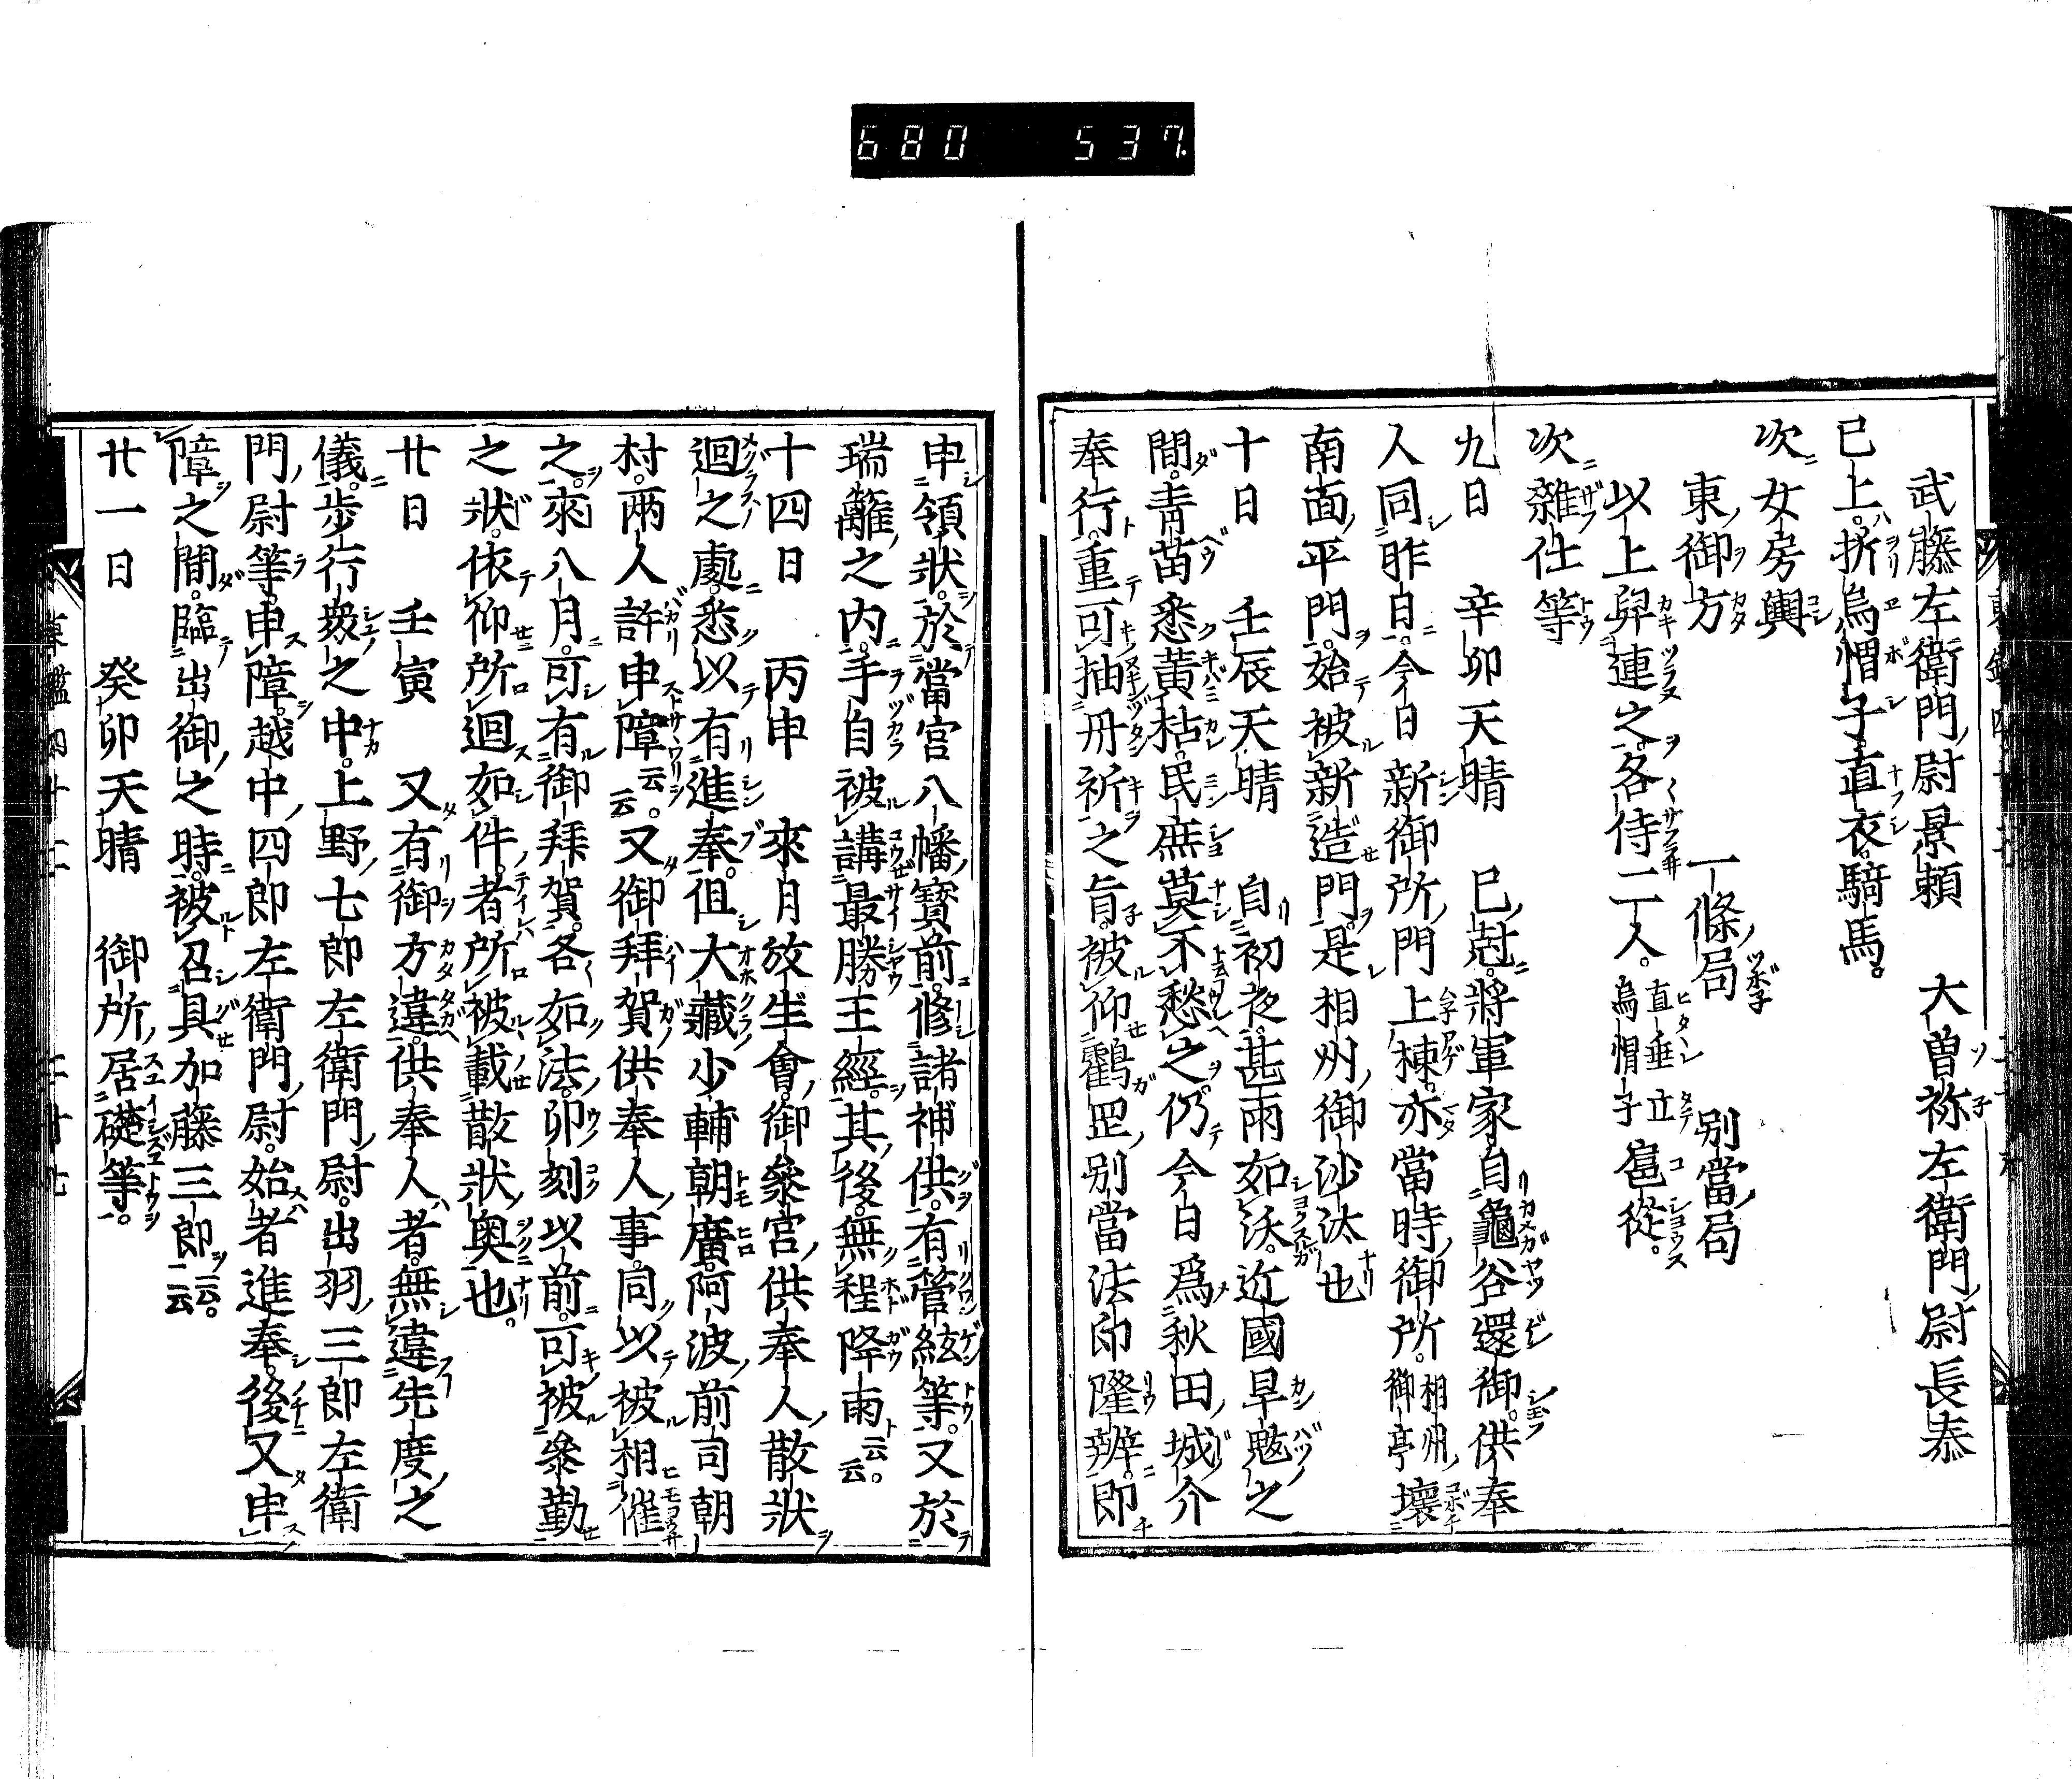 680 537
武藤左衛門尉景頼 大曽祢左衛門尉長泰
已上折烏帽子直衣騎馬。
次女房輿
東御方 一條局 別當局
以上舁連之各侍二人。直垂立烏帽子扈從。
次雜仕等
九日 辛卯天晴 巳尅。將軍家自龜谷還御。供奉
人同昨日。今日新御所門上棟。亦當時御所。相州御亭壞
南面平門。始被新造門。是相州御沙汰也
十日 壬辰天晴 自初夜。甚雨如沃。近國旱魃之
間。青苗悉黃枯。民庶莫不愁之。仍今日爲秋田城介
奉行。重可抽丹祈之旨。被仰靍罡別當法印隆辨。即
申領狀。於當宮八幡寳前。修諸神供。有管絃等。又於
瑞籬之内。手自被講最勝王經。其後。無程降雨云云。
十四日 丙申 來月放生會。御參宮供奉人散狀
迴之處。悉以有進奉。但大藏少輔朝廣。阿波前司朝
村。兩人許申障云云。又御拜賀供奉人事。同以被相催
之。來八月。可有御拜賀。各如法。卯刻以前。可被參勤
之狀。依仰所迴如件。者所被載散狀奥也。
廿日 壬寅 又有御方違。供奉人者。無違先度之
儀。歩行衆之中。上野七郎左衛門尉。出羽三郎左衛
門尉等。申障。越中四郎左衛門尉。始者進奉。後又申
障之間。臨出御之時。被召具加藤三郎云云。
廿一日 癸卯天晴 御所居礎等。